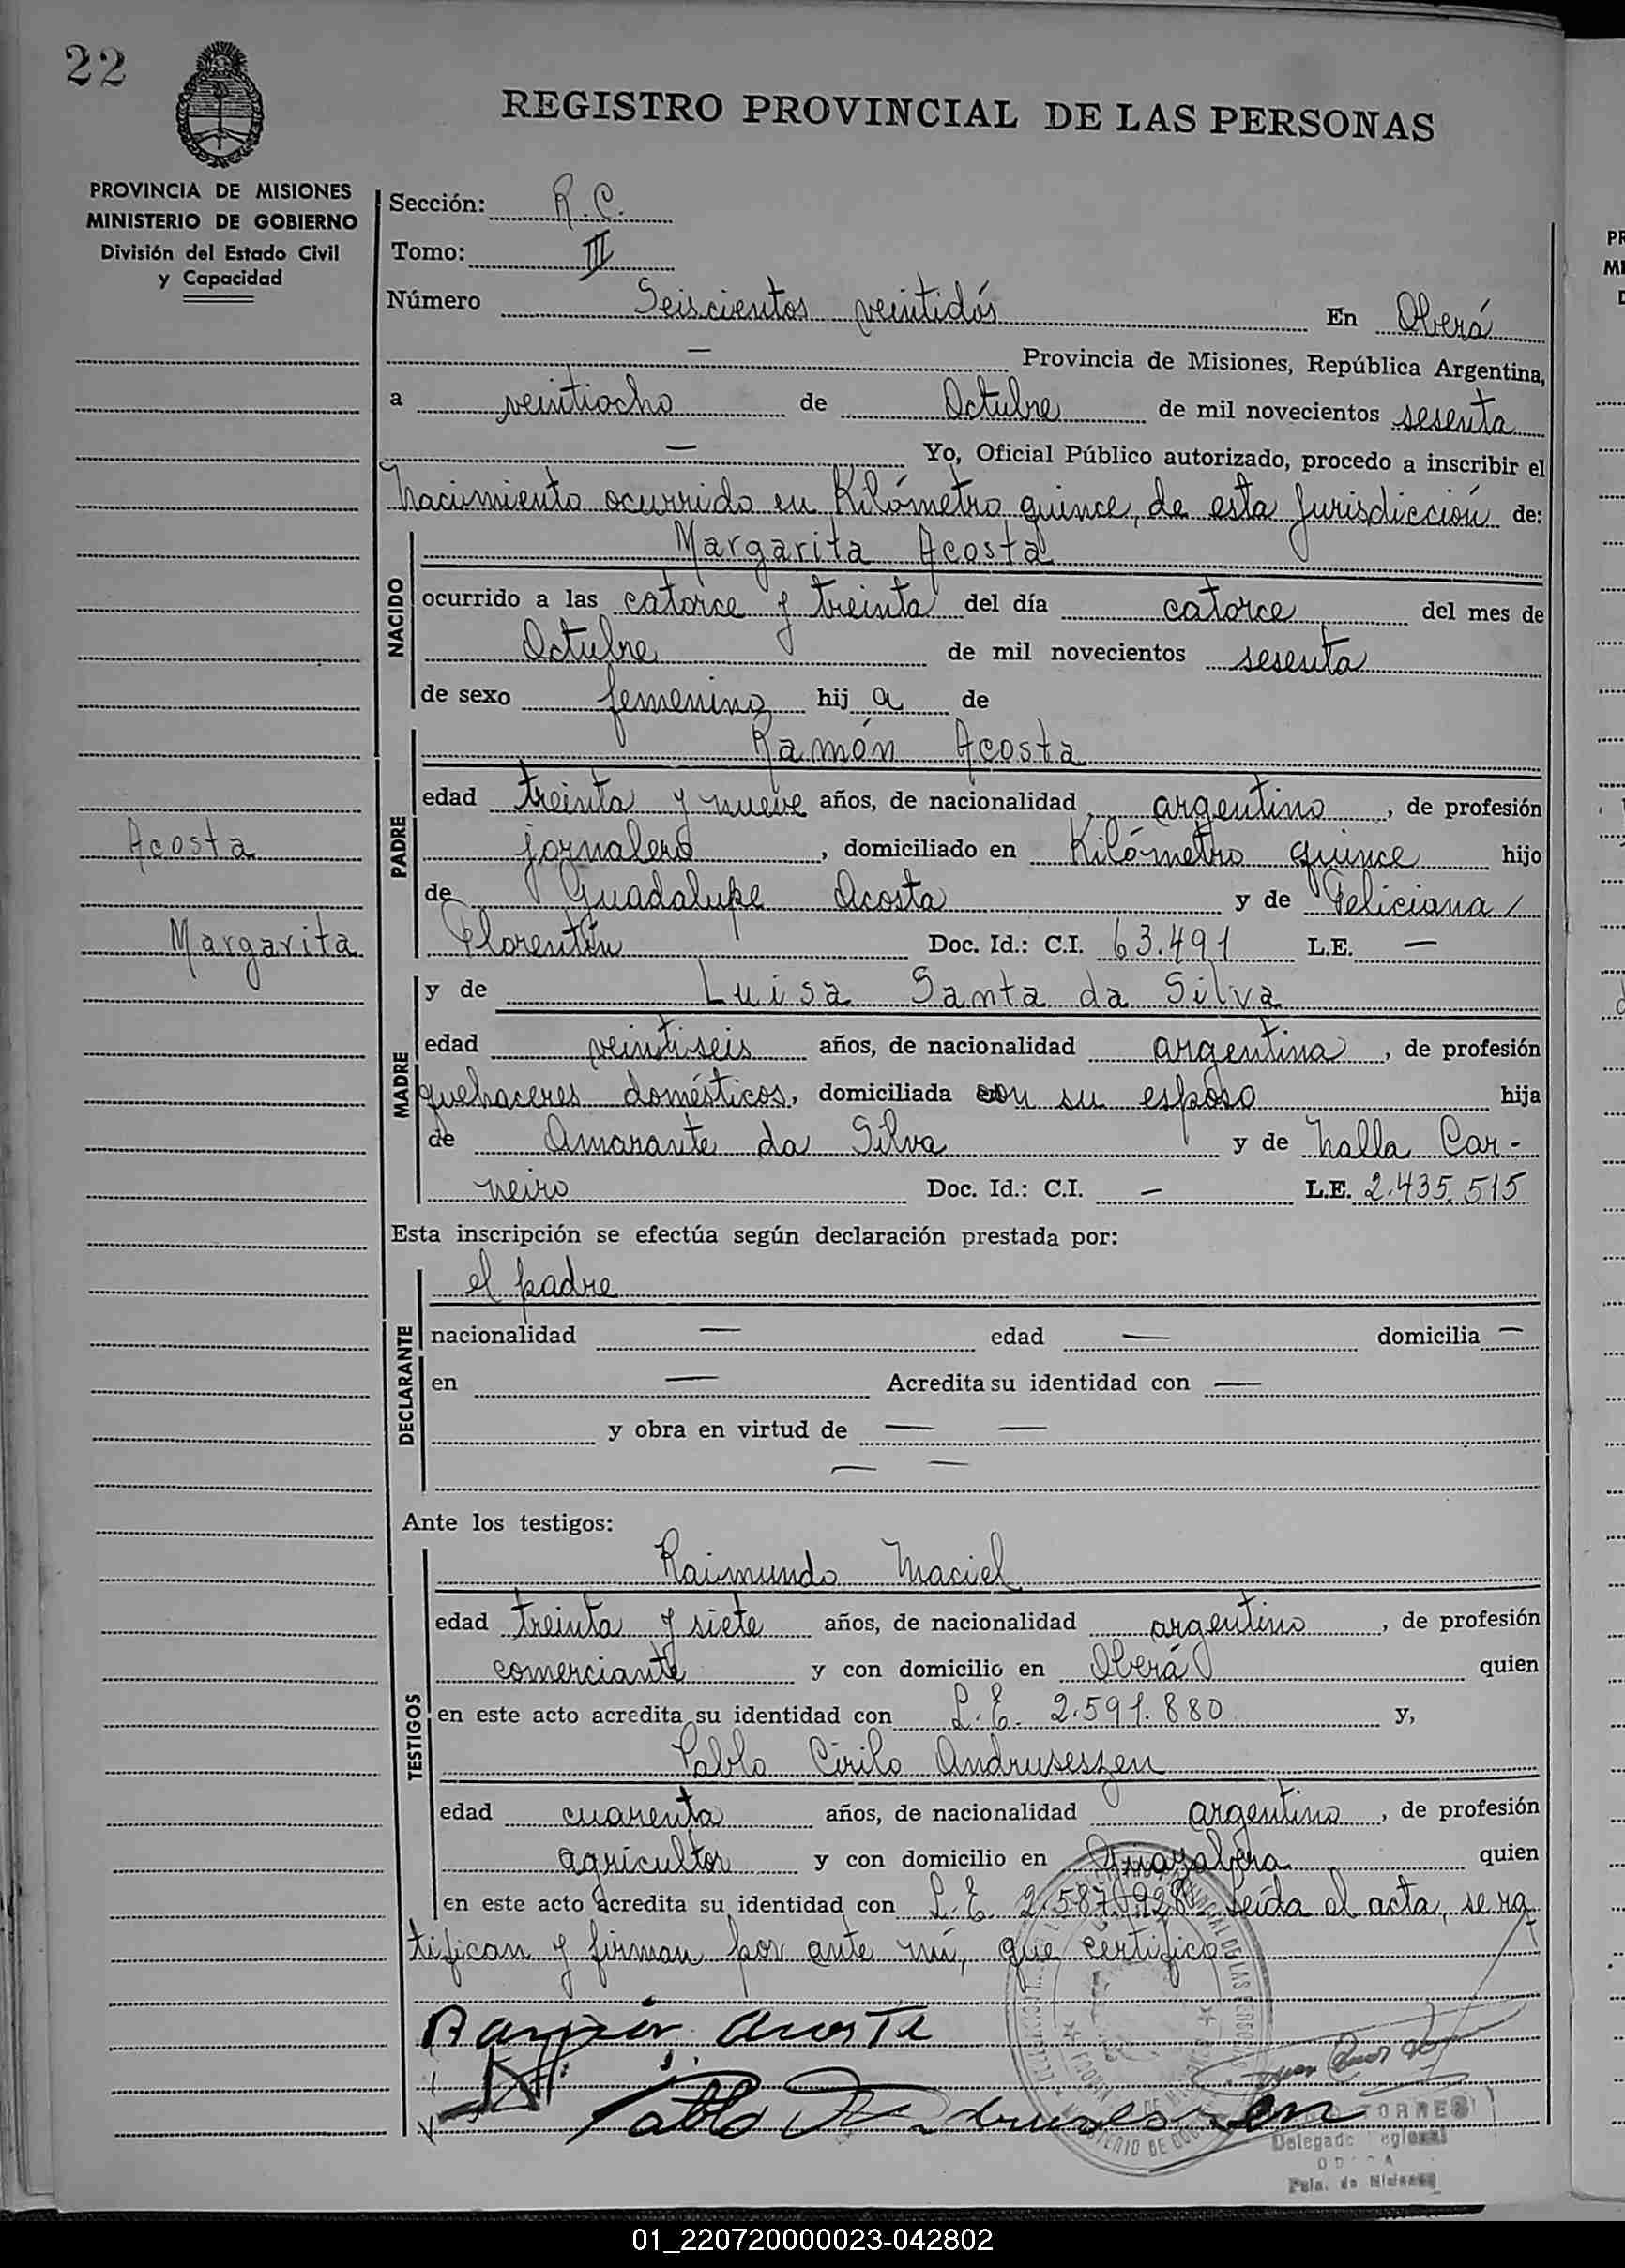 22
REGISTRO PROVINCIAL DE LAS PERSONAS
PROVINCIA DE MISIONES
MINISTERIO DE GOBIERNO
División del Estado Civil
y Capacidad
Sección: R.C.
Tomo: III
Número Seiscientos veintidós En Oberá
— Provincia de Misiones, República Argentina,
a veintiocho de Octubre de mil novecientos sesenta
— Yo, Oficial Público autorizado, procedo a inscribir el
Nacimiento ocurrido en Kilómetro quince, de esta Jurisdicción de:
NACIDO
Margarita Acosta
ocurrido a las catorce y treinta del día catorce del mes de
Octubre de mil novecientos sesenta
de sexo femenino hij a de
PADRE
Ramón Acosta
edad treinta y nueve años, de nacionalidad argentino, de profesión
jornalero, domiciliado en Kilómetro quince hijo
de Guadalupe Acosta y de Feliciana
Florentín Doc. Id.: C.I. 63.491 L.E. —
Acosta
Margarita
MADRE
y de Luisa Santa da Silva
edad veintiseis años, de nacionalidad argentina, de profesión
quehaceres domésticos, domiciliada con su esposo hija
de Amarante da Silva y de Nalla Car-
neiro Doc. Id.: C.I. — L.E. 2.435.515
Esta inscripción se efectúa según declaración prestada por:
DECLARANTE
el padre
nacionalidad — edad — domicilia —
en — Acredita su identidad con —
y obra en virtud de — —
— —
Ante los testigos:
TESTIGOS
Raimundo Maciel
edad treinta y siete años, de nacionalidad argentino, de profesión
comerciante y con domicilio en Oberá quien
en este acto acredita su identidad con L.E. 2.591.880 y,
Pablo Cirilo Andruseszen
edad cuarenta años, de nacionalidad argentino, de profesión
agricultor y con domicilio en quien
en este acto acredita su identidad con L.E. 2.587.928 Leída el acta, se ra
tifican y firman por ante mí, que certifico
Ramón Acosta
Pablo Andrusessen
TORRES
Delegado
Pcia. de Misiones
01_220720000023-042802